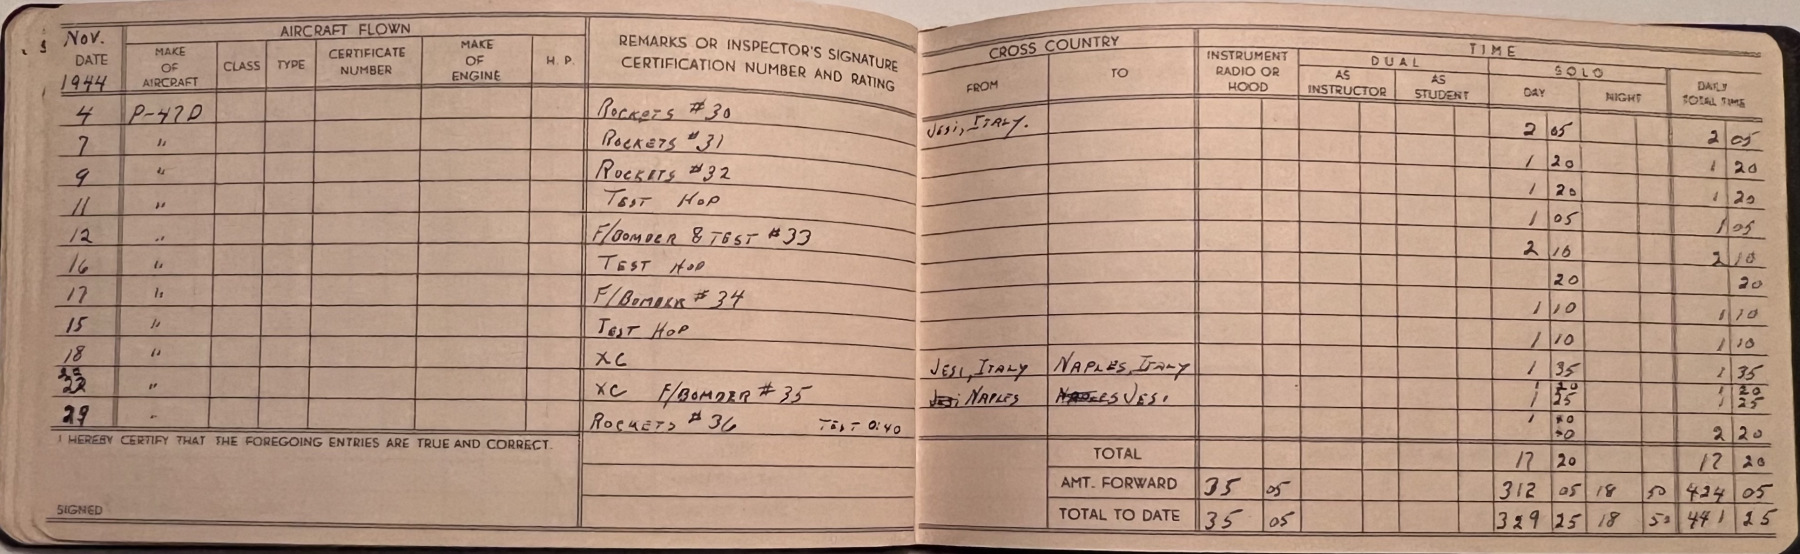 Nov. AIRCRAFT FLOWN REMARKS OR INSPECTOR'S SIGNATURE CERTIFICATION NUMBER AND RATING CROSS COUNTRY TIME
DATE MAKE OF AIRCRAFT CLASS TYPE CERTIFICATE NUMBER MAKE OF ENGINE H. P. FROM TO INSTRUMENT RADIO OR HOOD DUAL AS INSTRUCTOR AS STUDENT SOLO DAY NIGHT DAILY TOTAL TIME
1944
4 P-47D ROCKETS #30 JESI, ITALY. 2 05 2 05
7 " ROCKETS #31 1 20 1 20
9 " ROCKETS #32 1 20 1 20
11 " TEST HOP 1 05 1 05
12 " F/BOMBER & TEST #33 2 10 2 10
16 " TEST HOP 20 20
17 " F/BOMBER #34 1 10 1 10
15 " TEST HOP 1 10 1 10
18 " XC JESI, ITALY NAPLES, ITALY 1 35 1 35
22 " XC F/BOMBER #35 NAPLES JESI 1 20 1 20
1 25 1 25
29 " ROCKETS #36 TEST 0:40 1 2 20
I HEREBY CERTIFY THAT THE FOREGOING ENTRIES ARE TRUE AND CORRECT.
TOTAL 17 20 17 20
AMT. FORWARD 35 05 312 05 18 50 424 05
SIGNED TOTAL TO DATE 35 05 329 25 18 50 441 25